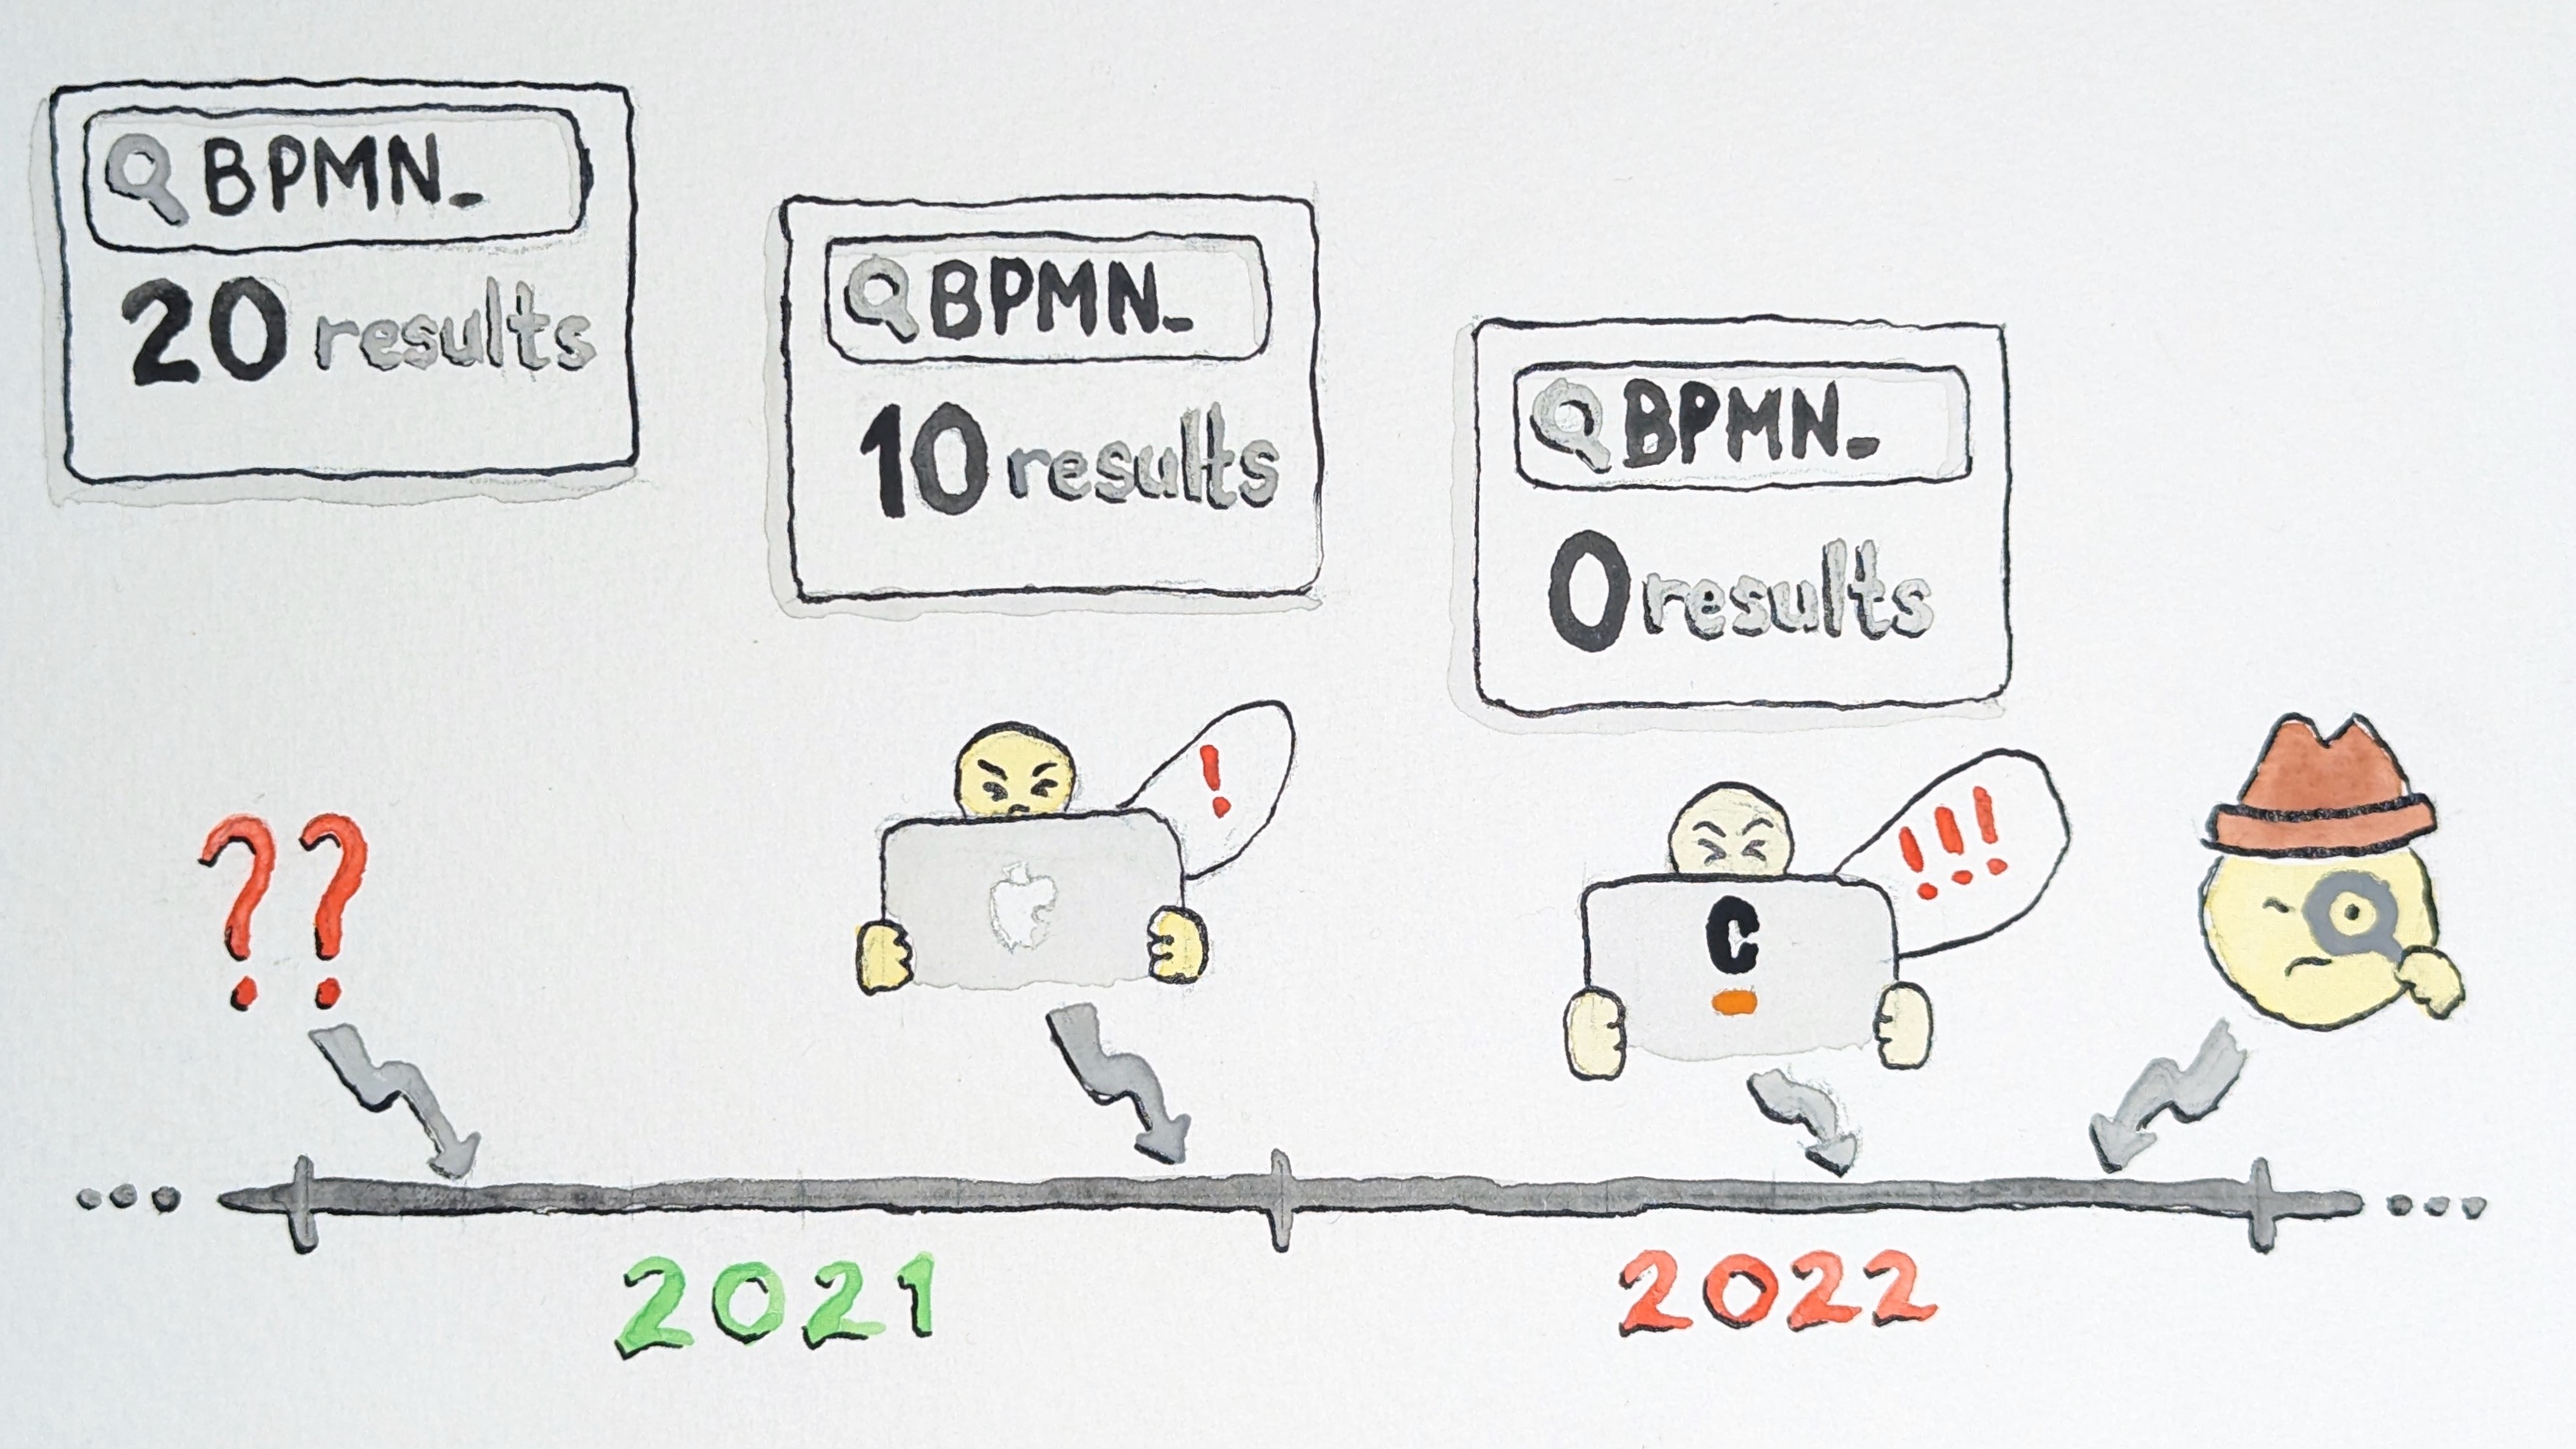 BPMN_
20 results
BPMN_
10 results
BPMN_
0 results
??
!
!!!
C
2021
2022